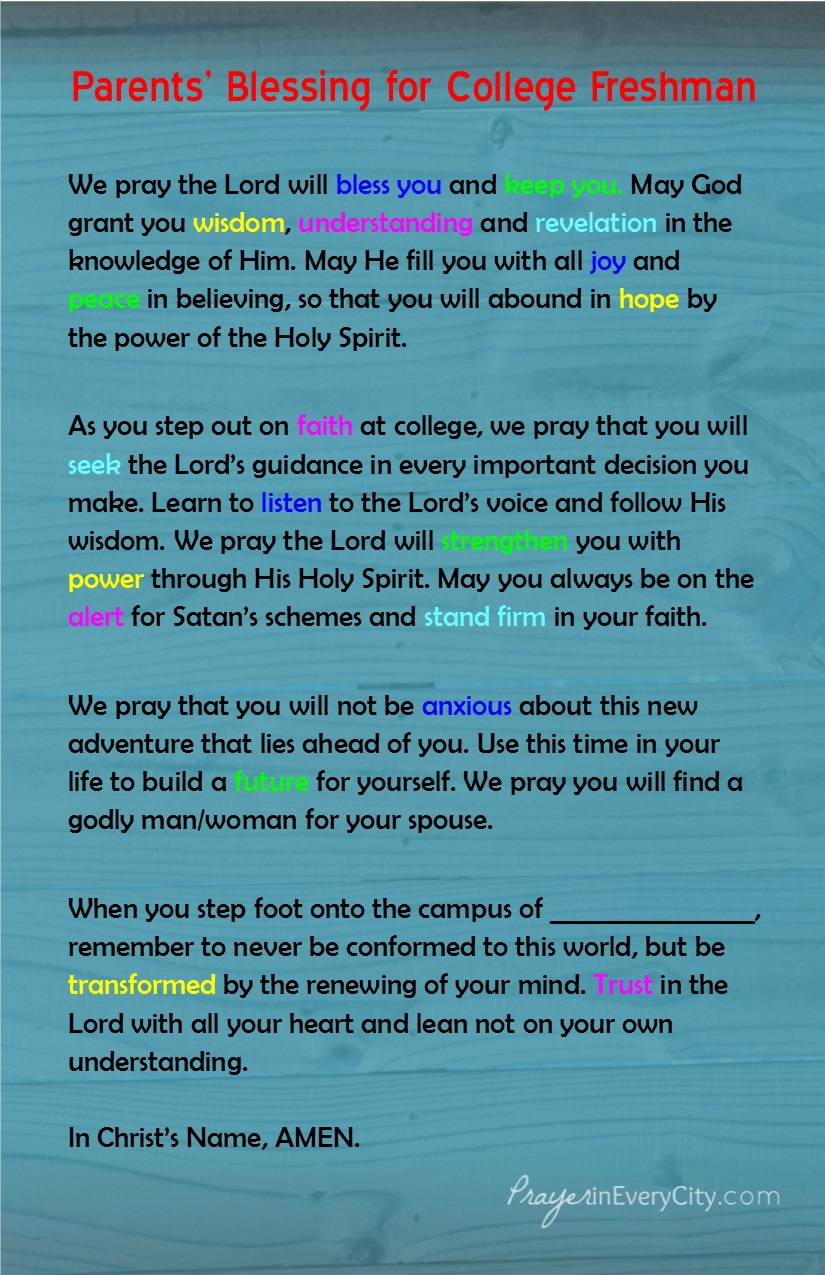 Parents’ Blessing for College Freshman
We pray the Lord will bless you and keep you. May God
grant you wisdom, understanding and revelation in the
knowledge of Him. May He fill you with all joy and
peace in believing, so that you will abound in hope by
the power of the Holy Spirit.
As you step out on faith at college, we pray that you will
seek the Lord’s guidance in every important decision you
make. Learn to listen to the Lord’s voice and follow His
wisdom. We pray the Lord will strengthen you with
power through His Holy Spirit. May you always be on the
alert for Satan’s schemes and stand firm in your faith.
We pray that you will not be anxious about this new
adventure that lies ahead of you. Use this time in your
life to build a future for yourself. We pray you will find a
godly man/woman for your spouse.
When you step foot onto the campus of ______________,
remember to never be conformed to this world, but be
transformed by the renewing of your mind. Trust in the
Lord with all your heart and lean not on your own
understanding.
In Christ’s Name, AMEN.
PrayerinEveryCity.com